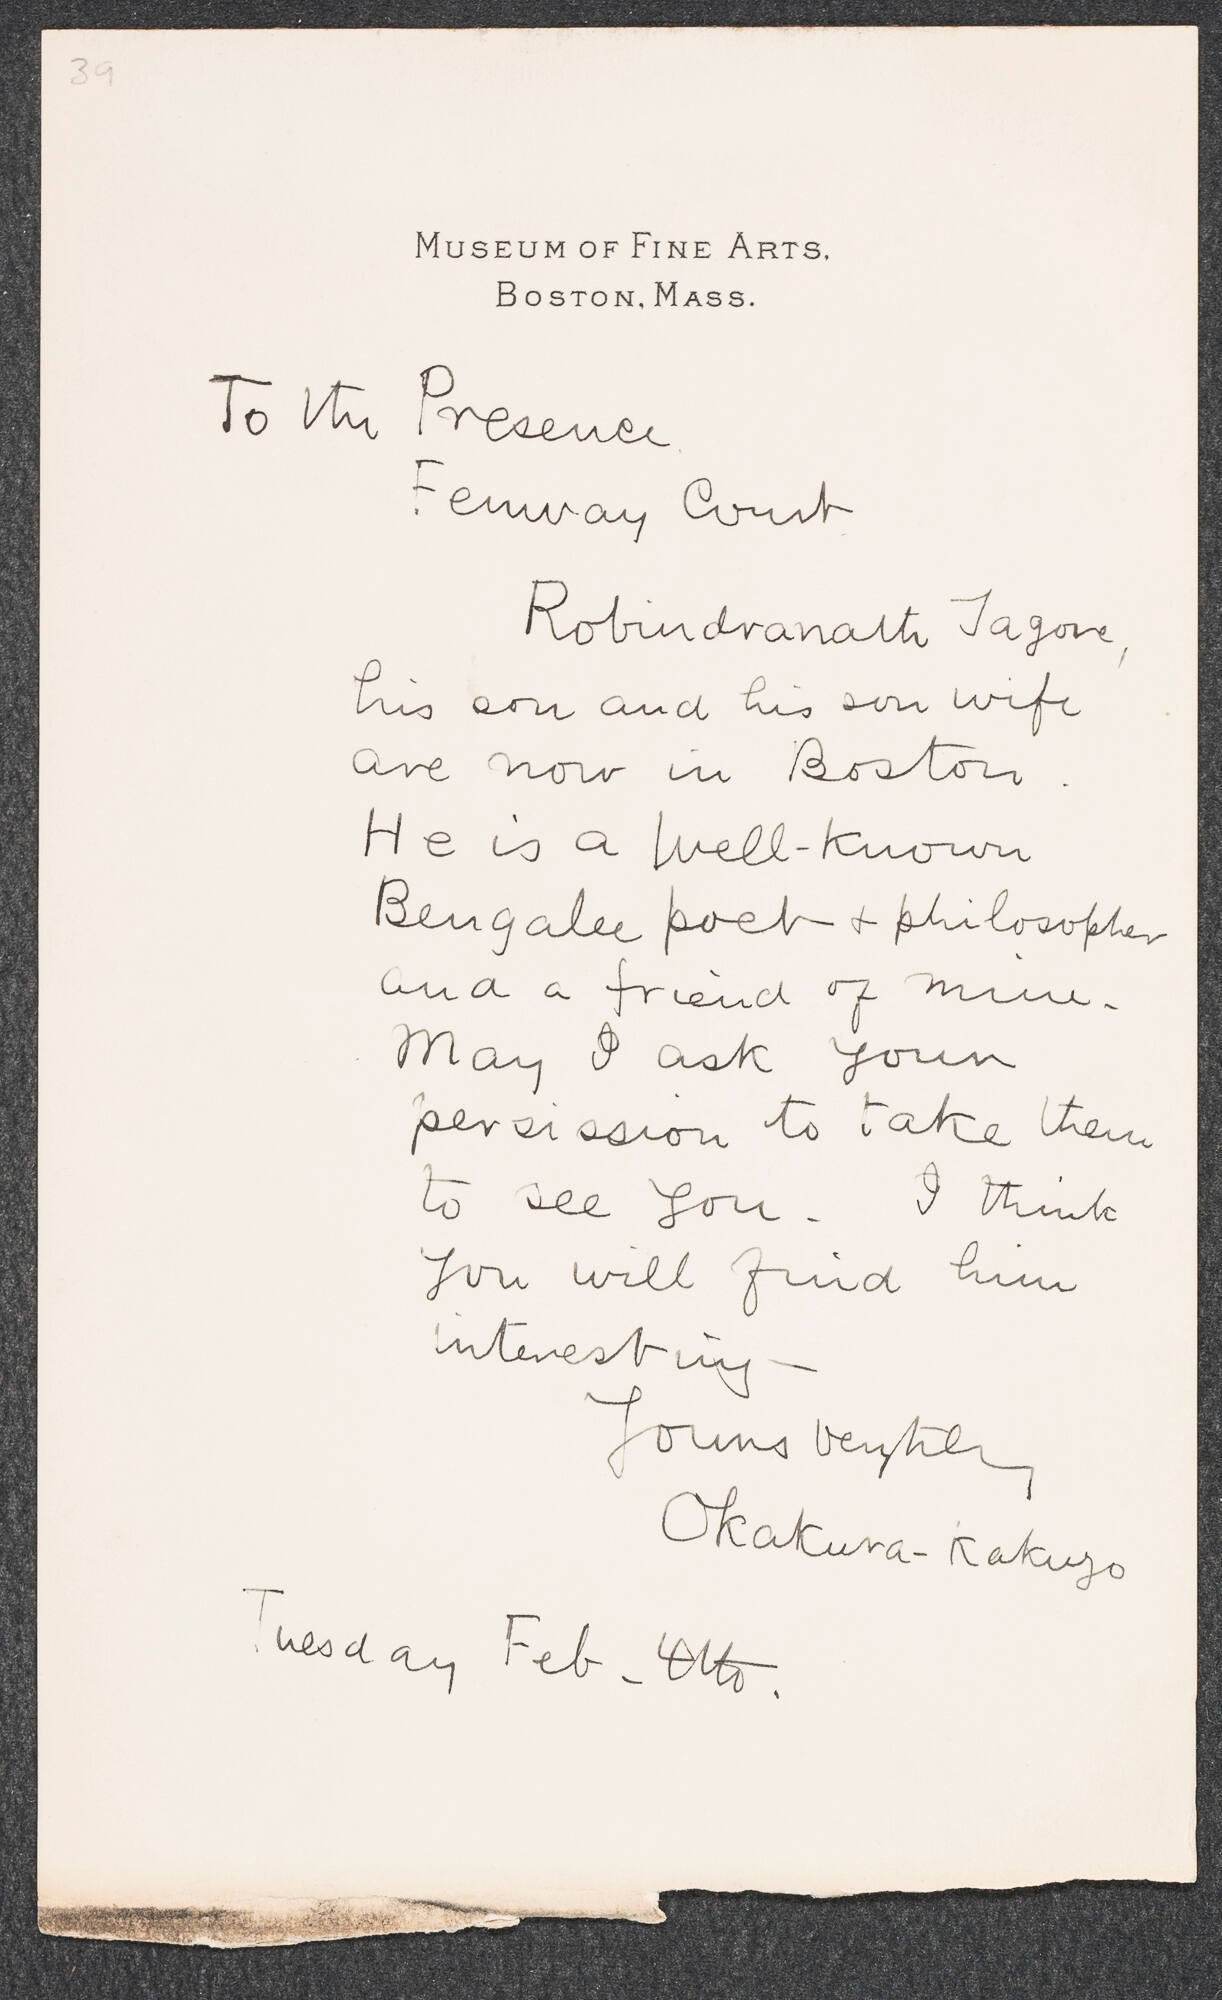 39
MUSEUM OF FINE ARTS,
BOSTON, MASS.
To the Presence
Fenway Court
Robindranath Tagore,
his son and his son wife
are now in Boston.
He is a well-known
Bengalee poet + philosopher
and a friend of mine.
May I ask your
persission to take them
to see you. I think
you will find him
interesting —
Yours very truly
Okakura-Kakuzo
Tuesday Feb - 4th.